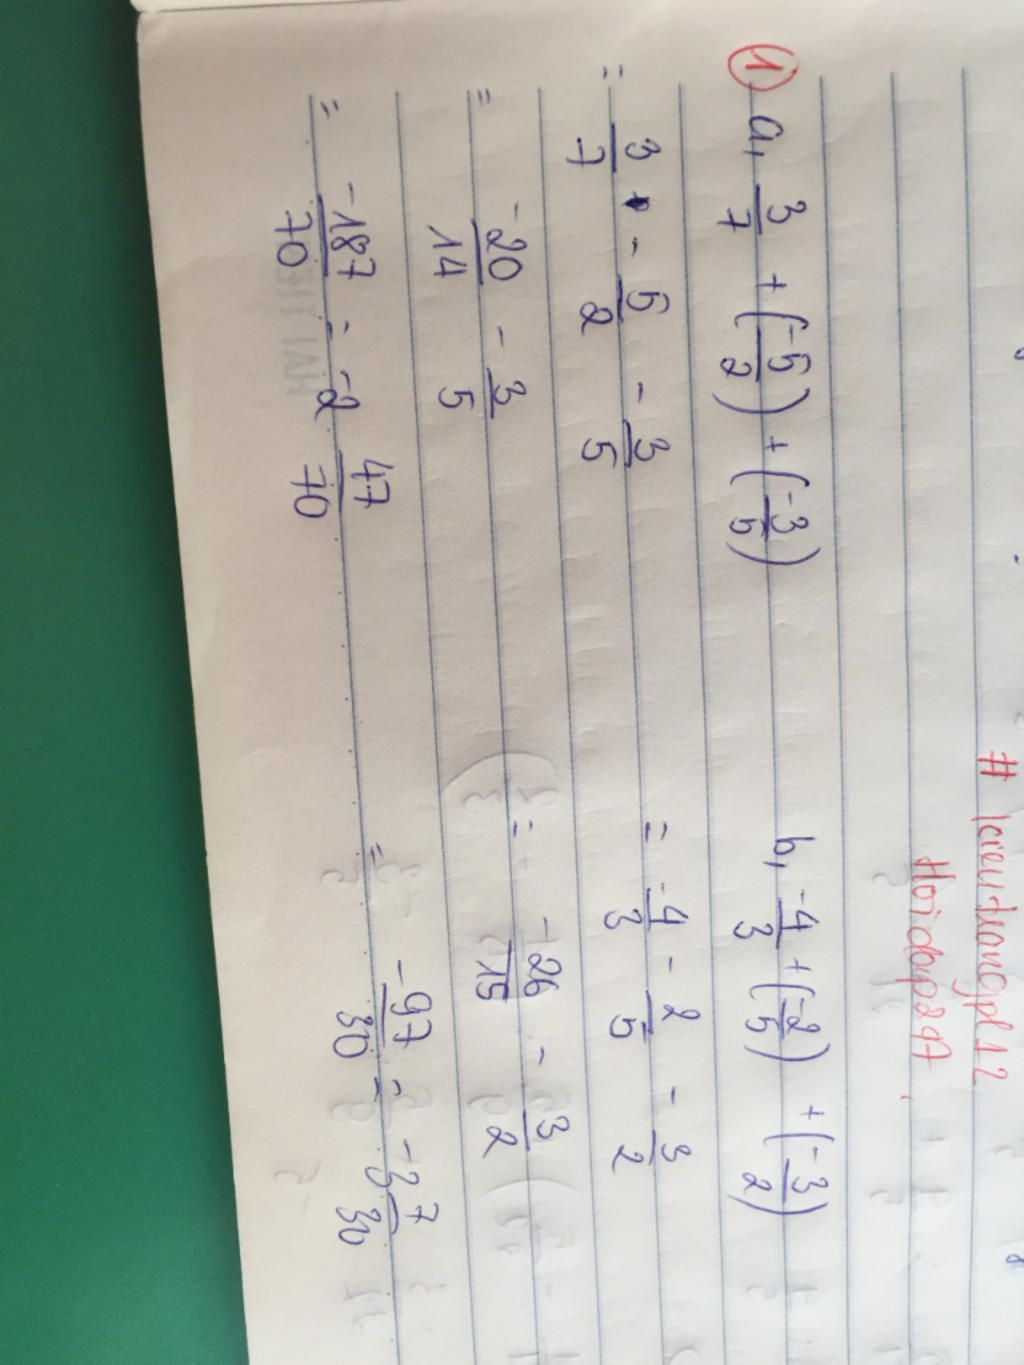 # kieutrangpl12
Hoidap247.
① a, 3/7 + (-5/2) + (-3/5)
= 3/7 - 5/2 - 3/5
= -20/14 - 3/5
= -187/70 = -2 47/70
b, -4/3 + (-2/5) + (-3/2)
= -4/3 - 2/5 - 3/2
= -26/15 - 3/2
= -97/30 = -3 7/30